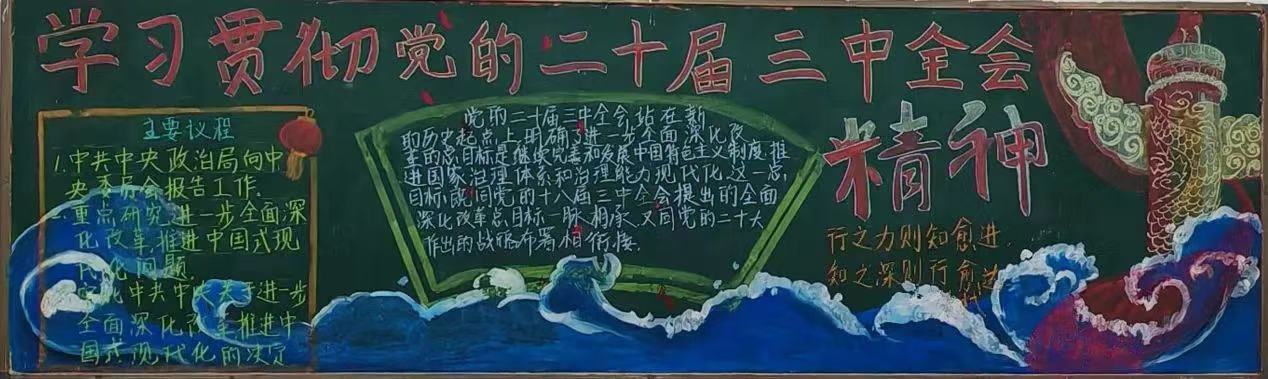 学习贯彻党的二十届三中全会
精神
主要议程
1.中共中央政治局向中
央委员会报告工作.
重点研究进一步全面深
化改革,推进中国式现
代化问题.
中共中央关于进一步
全面深化改革推进中
国式现代化的决定
党的二十届三中全会站在新
的历史起点上,明确了进一步全面深化改
革的总目标是继续完善和发展中国特色主义制度,推
进国家治理体系和治理能力现代化.这一总
目标,既同党的十八届三中全会提出的全面
深化改革总目标一脉相承,又同党的二十大
作出的战略布署相衔接.
行之力则知愈进,
知之深则行愈达